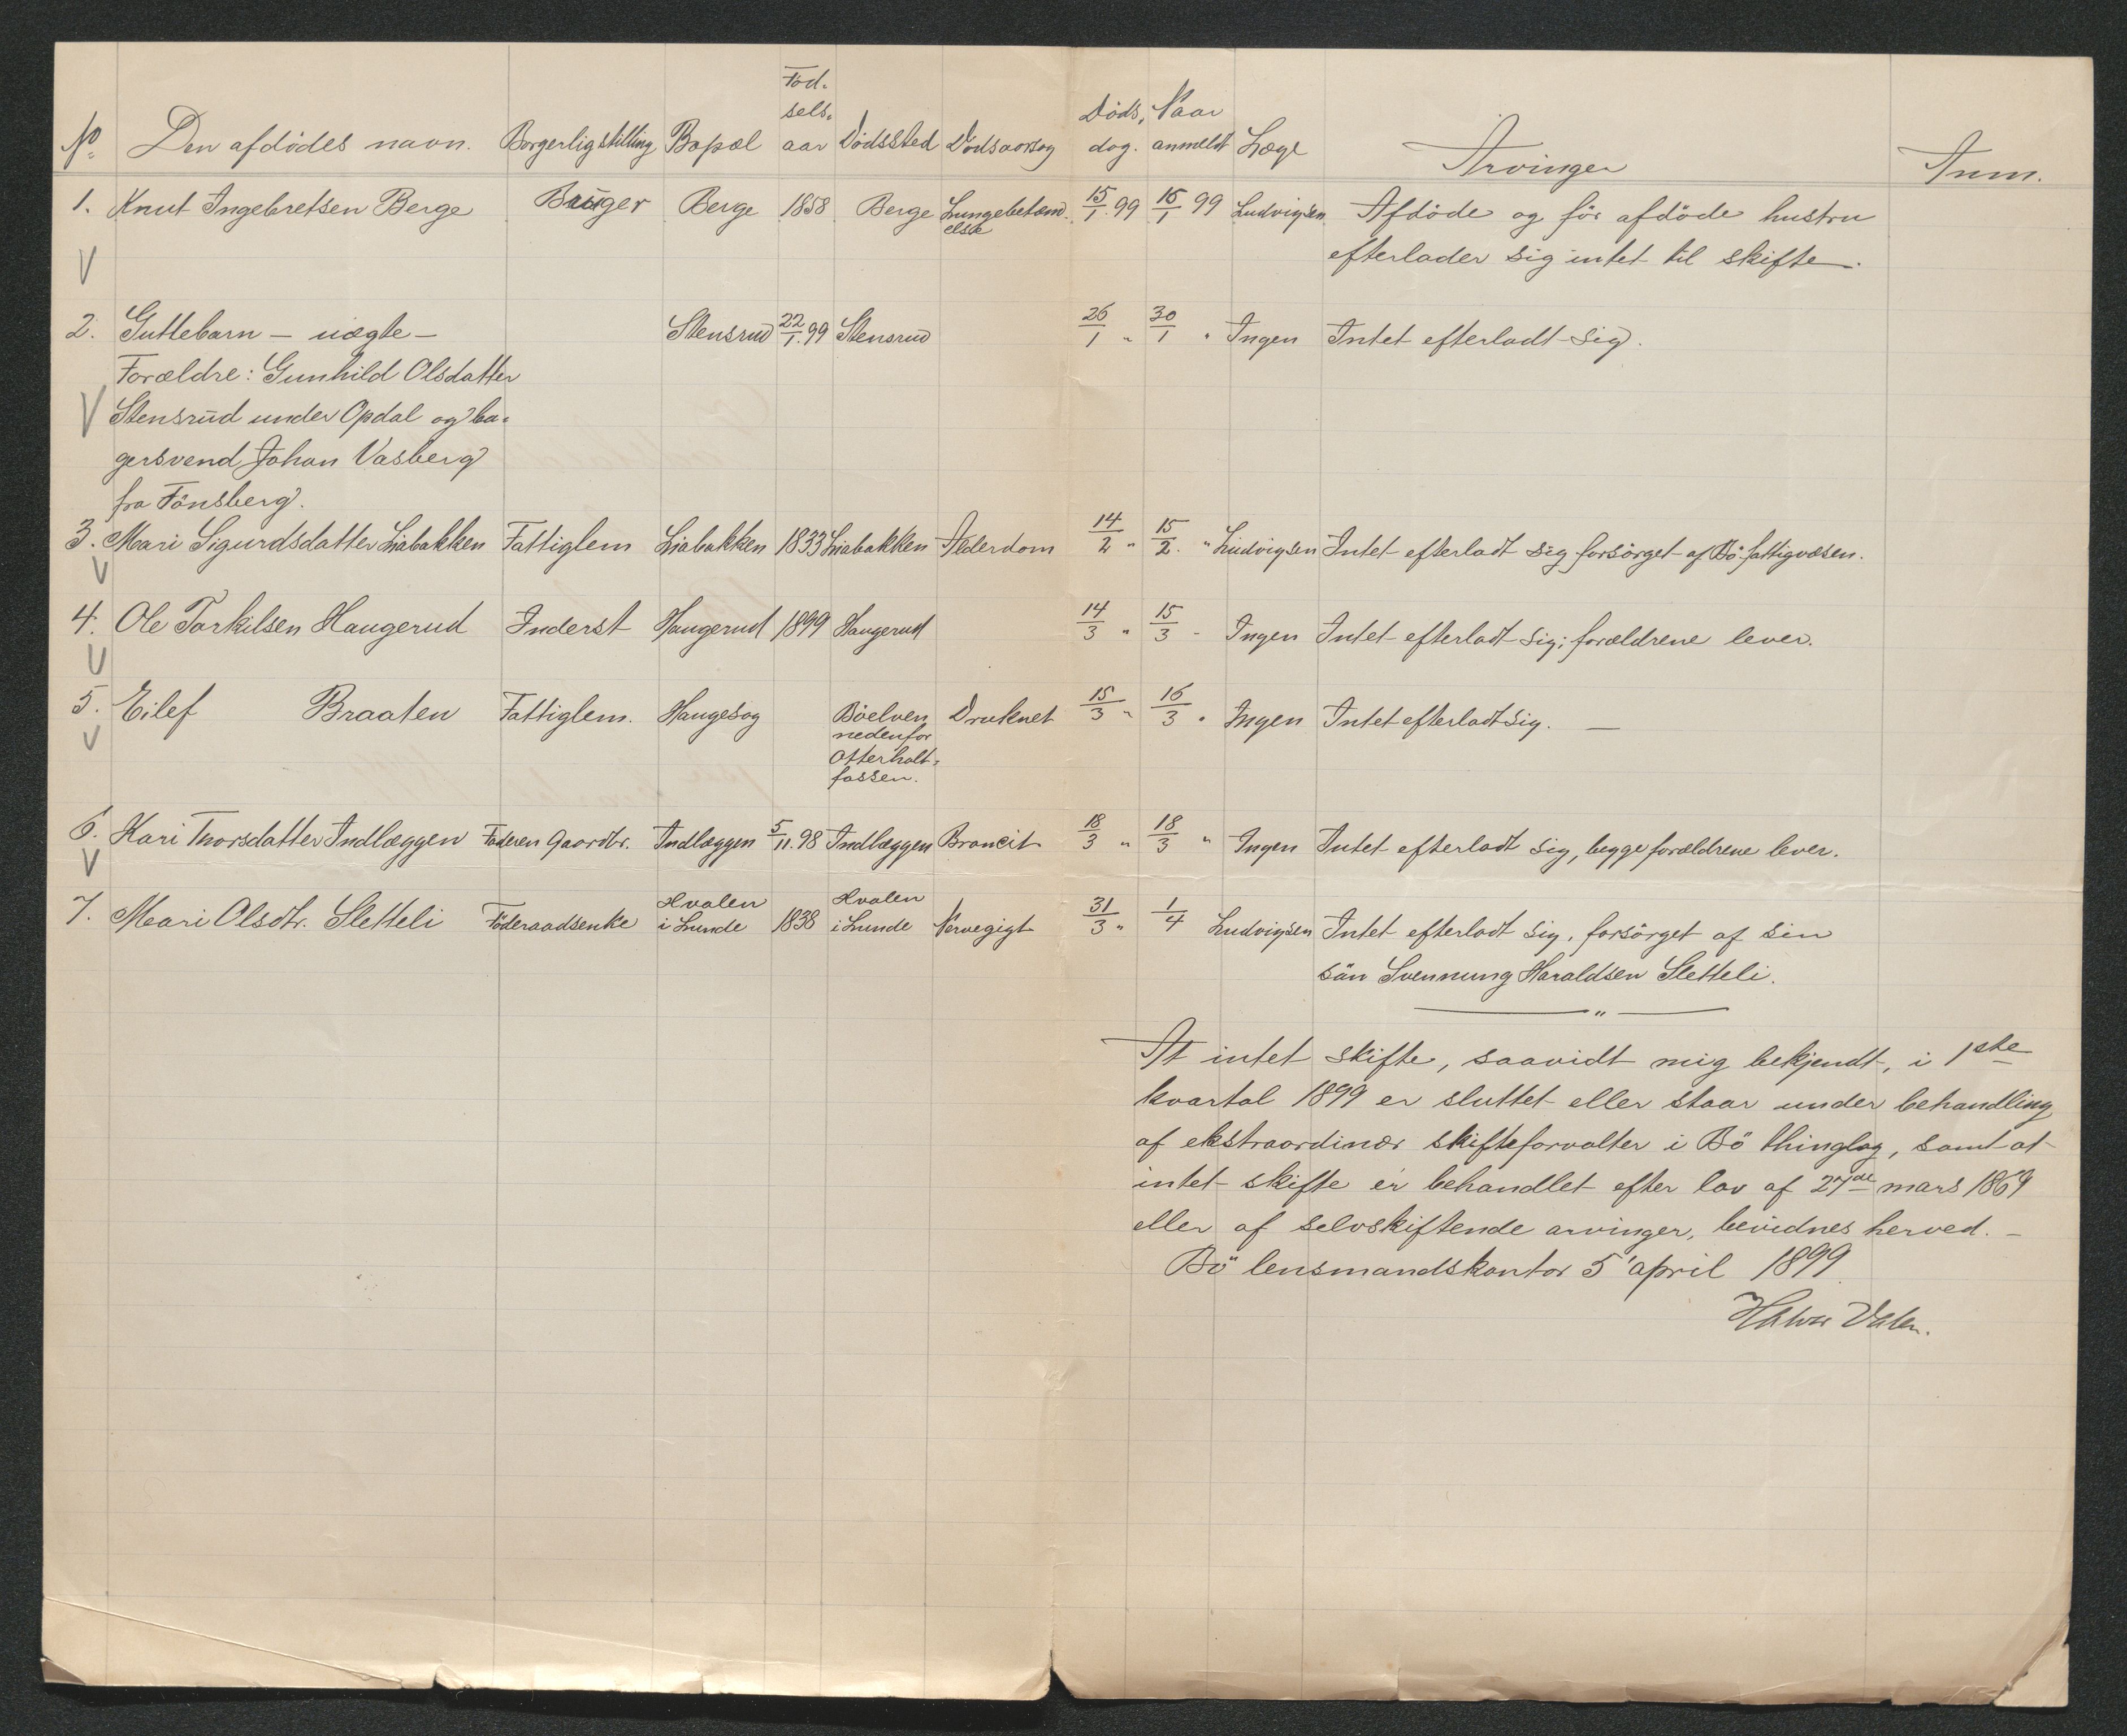 No. Den afdödes navn. Borgerlig stilling Bopæl Födselsaar Dödssted Dödsaarsag Dödsdag. Naar anmeldt Læge Arvinger Anm.
1. Knut Ingebretsen Berge Bruger Berge 1858 Berge Lungebetændelse 15/1. 99 16/1 99 Ludvigsen Afdöde og för afdöde hustru
efterlader sig intet til skifte.
2. Guttebarn – uægte – Stensrud 22/1. 99 Stensrud 26/1 " 30/1 " Ingen Intet efterladt sig.
Forældre: Gunhild Olsdatter
Stensrud under Opdal og ba-
gersvend Johan Vasberg
fra Tönsberg.
3. Mari Sigurdsdatter Liabakken Fattiglem Liabakken 1833 Liabakken Alderdom 14/2 " 15/2. " Ludvigsen Intet efterladt sig forsörget af Bö fattigvæsen.
4. Ole Torkilsen Haugerud Inderst Haugerud 1899 Haugerud 14/3 " 15/3 - Ingen Intet efterladt sig; forældrene lever.
5. Eilef Braaten Fattiglem. Haugesag Böelven Druknet 15/3 " 16/3 " Ingen Intet efterladt sig. —
nedenfor
Otterholt-
fossen.
6. Kari Thorsdatter Indlæggen Faderen Gaardbr. Indlæggen 5/11. 98 Indlæggen Broncit 18/3 " 18/3 " Ingen Intet efterladt sig, begge forældrene lever.
7. Mari Olsdtr. Sletteli Föderaadsenke Hvalen i Lunde 1838 Hvalen i Lunde Nervegigt 31/3 " 1/4 Ludvigsen Intet efterladt sig, forsörget af sin
sön Svennung Haraldsen Sletteli.
— " —
At intet skifte, saavidt mig bekjendt, i 1ste
kvartal 1899 er sluttet eller staar under behandling
af ekstraordinær skifteforvalter i Bö thinglag, samt at
intet skifte er behandlet efter lov af 27de mars 1869
eller af selvskiftende arvinger, bevidnes herved. –
Bö lensmandskontor 5' april 1899
Halvor Valen.